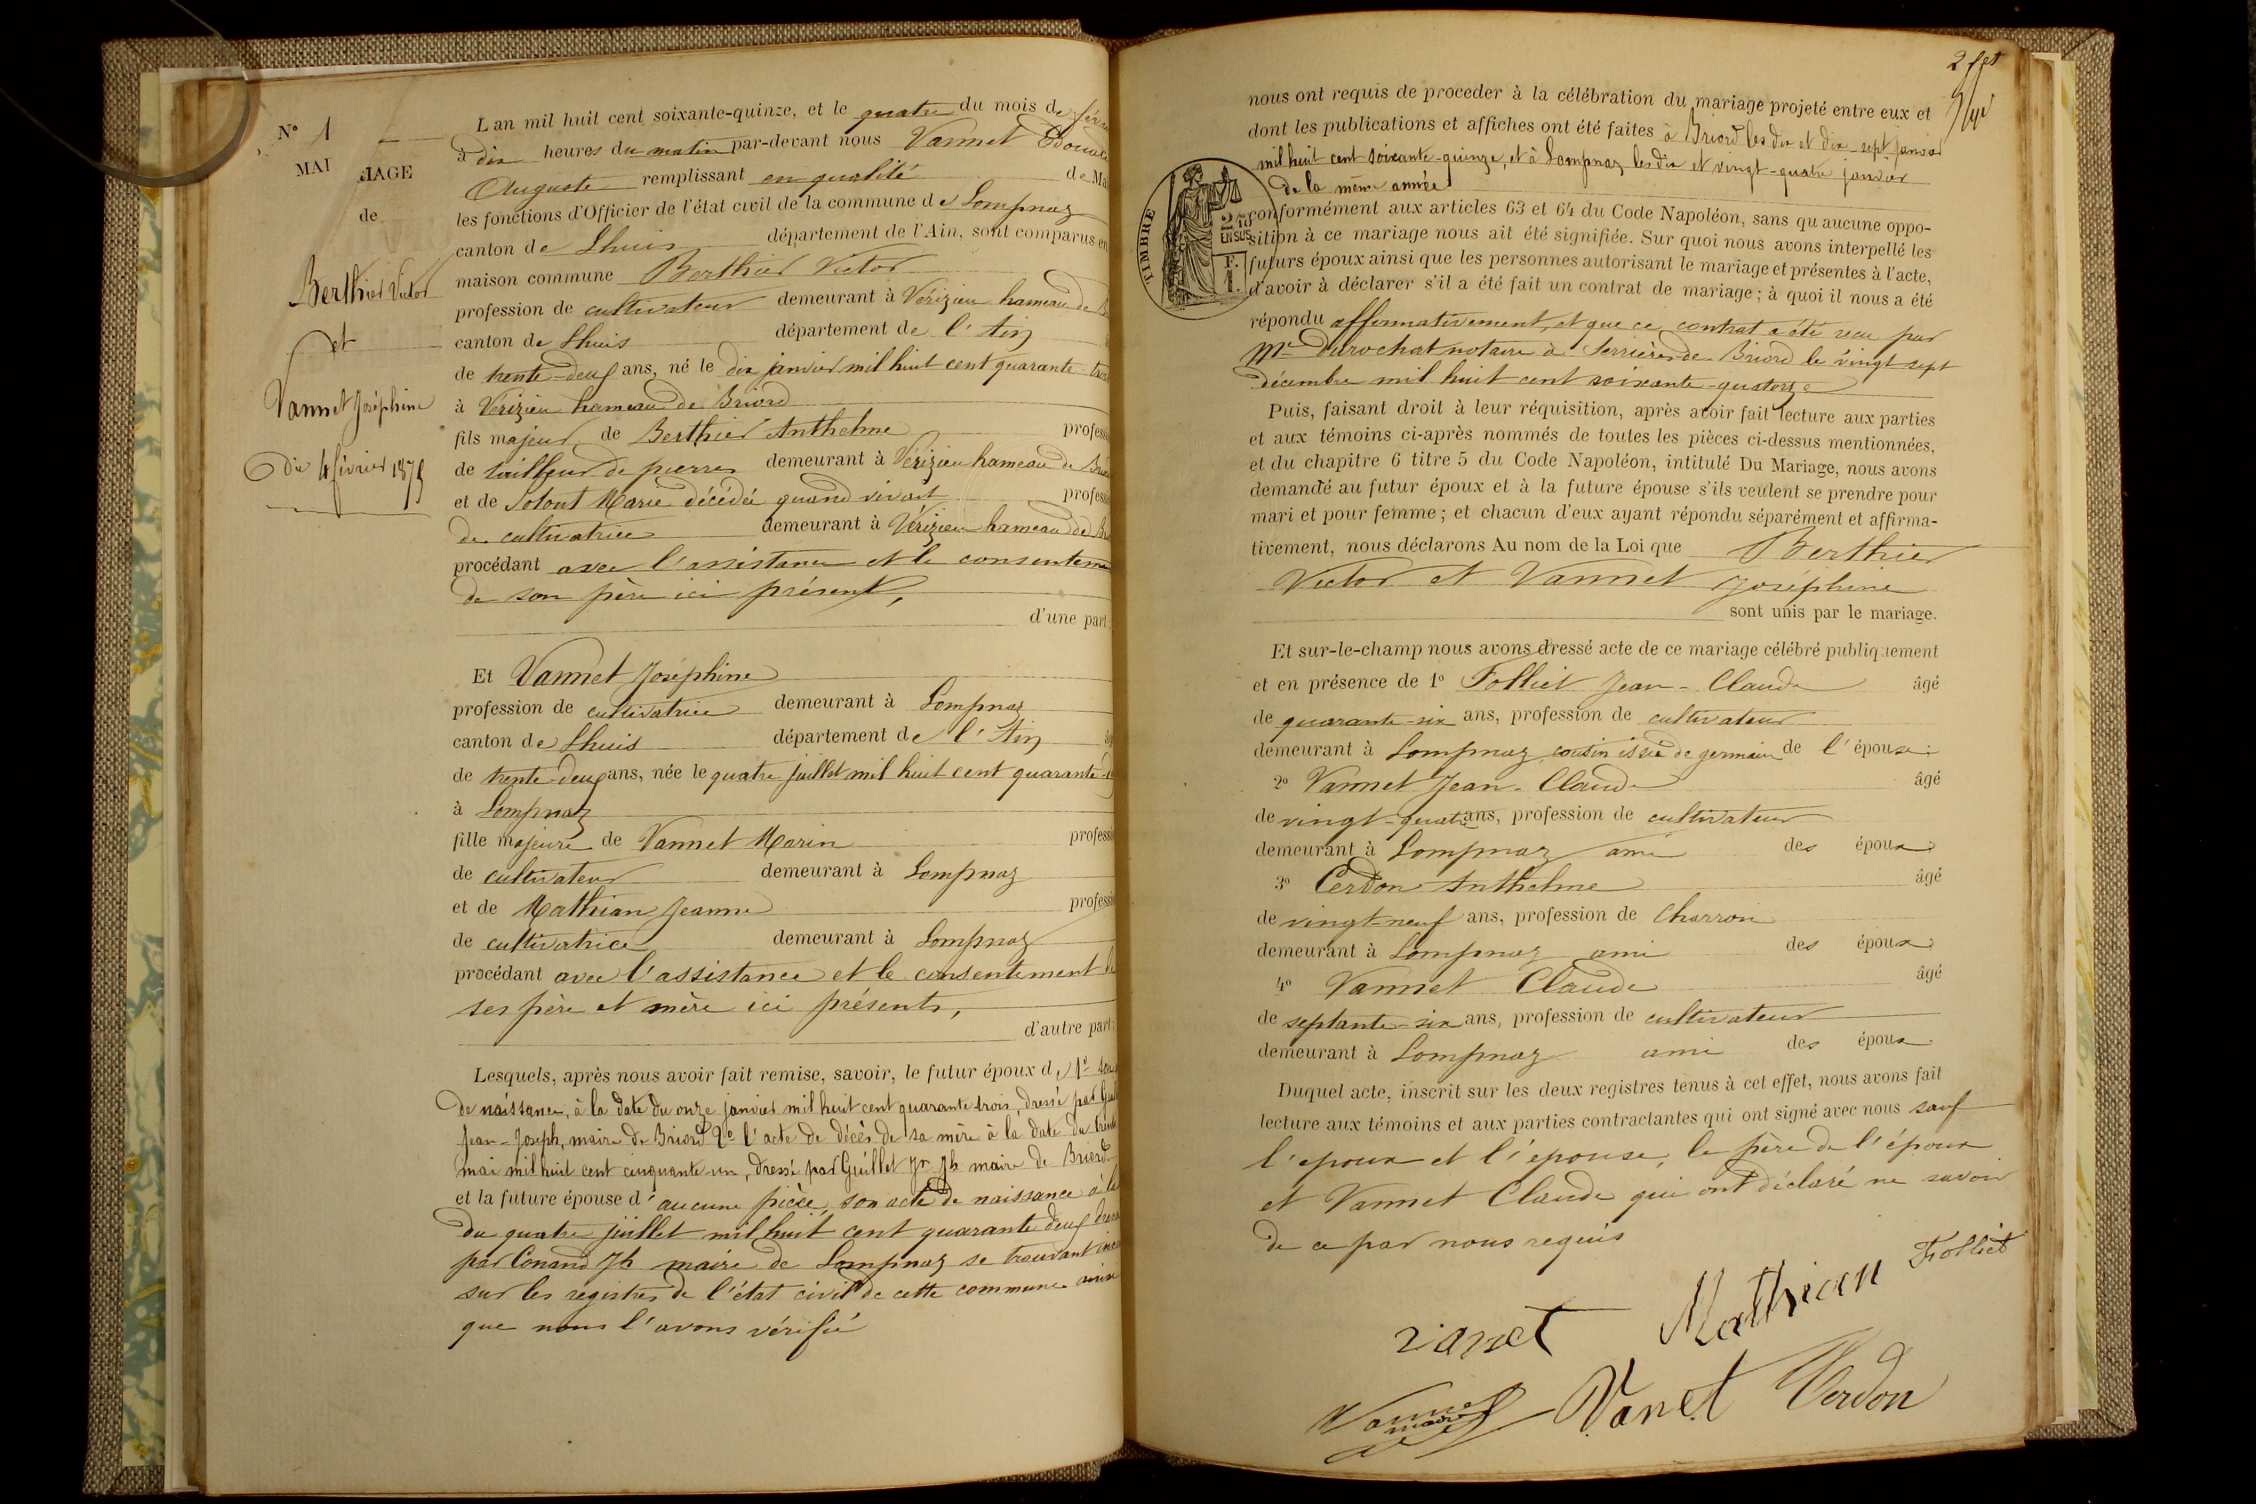 N° 1
MARIAGE
de
Berthier Victor
et
Vannet Joséphine
Du 4 février 1875
L'an mil huit cent soixante-quinze, et le quatre du mois de
à dix heures du matin par-devant nous Vannet Edouard
Auguste remplissant en qualité de
les fonctions d'Officier de l'état civil de la commune de Lompnaz
canton de Lhuis département de l'Ain, sont comparus en
maison commune Berthier Victor
profession de cultivateur demeurant à Vérizieu hameau de
canton de Lhuis département de l'Ain
de trente-deux ans, né le dix janvier mil huit cent quarante-
à Vérizieu hameau de Briord
fils majeur de Berthier Anthelme
de tailleur de pierres demeurant à Vérizieu hameau de
et de Solout Marie décédée quand vivait
de cultivatrice demeurant à Vérizieu hameau de
procédant avec l'assistance et le
de son père ici présent,
d'une part
Et Vannet Joséphine
profession de cultivatrice demeurant à Lompnaz
canton de Lhuis département de l'Ain
de trente-deux ans, née le quatre juillet mil huit cent quarante-
à Lompnaz
fille majeure de Vannet Marin
de cultivateur demeurant à Lompnaz
et de Mathian Jeanne
de cultivatrice demeurant à Lompnaz
procédant avec l'assistance et le consentement de
ses père et mère ici présents,
d'autre part
Lesquels, après nous avoir fait remise, savoir, le futur époux de 1°
de naissance, à la date du onze janvier mil huit cent quarante trois, dressé par
Jean-Joseph, maire de Briord 2° l'acte de décès de sa mère à la date du
mai mil huit cent cinquante-un, dressé par Guillet Jn Jh maire de Briord
et la future épouse d'aucune pièce, son acte de naissance à la
du quatre juillet mil huit cent quarante deux
par Conand Jh maire de Lompnaz se trouvant
sur les registres de l'état civil de cette commune ainsi
que nous l'avons vérifié
nous ont requis de proceder à la célébration du mariage projeté entre eux et
dont les publications et affiches ont été faites à Briord les dix et dix-sept janvier
mil huit cent soixante-quinze, et à Lompnaz les dix et vingt-quatre janvier
de la même année
TIMBRE
EN SUS
conformément aux articles 63 et 64 du Code Napoléon, sans qu'aucune oppo-
sition à ce mariage nous ait été signifiée. Sur quoi nous avons interpellé les
futurs époux ainsi que les personnes autorisant le mariage et présentes à l'acte,
d'avoir à déclarer s'il a été fait un contrat de mariage ; à quoi il nous a été
répondu affirmativement, et que ce contrat a été reçu par
Me Durochat notaire à Serrières-de-Briord le vingt-sept
décembre mil huit cent soixante-quatorze
Puis, faisant droit à leur réquisition, après avoir fait lecture aux parties
et aux témoins ci-après nommés de toutes les pièces ci-dessus mentionnées,
et du chapitre 6 titre 5 du Code Napoléon, intitulé Du Mariage, nous avons
demandé au futur époux et à la future épouse s'ils veulent se prendre pour
mari et pour femme ; et chacun d'eux ayant répondu séparément et affirma-
tivement, nous déclarons Au nom de la Loi que Berthier
Victor et Vannet Joséphine
sont unis par le mariage.
Et sur-le-champ nous avons dressé acte de ce mariage célébré publiquement
et en présence de 1° Folliet Jean-Claude âgé
de quarante-six ans, profession de cultivateur
demeurant à Lompnaz cousin issu de germain de l'épouse
2° Vannet Jean-Claude âgé
de vingt-quatre ans, profession de cultivateur
demeurant à Lompnaz ami des époux
3° Cerdon Anthelme âgé
de vingt-neuf ans, profession de Charron
demeurant à Lompnaz ami des époux
4° Vannet Claude âgé
de septante-six ans, profession de cultivateur
demeurant à Lompnaz ami des époux
Duquel acte, inscrit sur les deux registres tenus à cet effet, nous avons fait
lecture aux témoins et aux parties contractantes qui ont signé avec nous sauf
l'époux et l'épouse, le père de l'époux
et Vannet Claude qui ont déclaré ne savoir
de ce par nous requis
Folliet
Mathian
vanet
Vanet
Verdon
maire